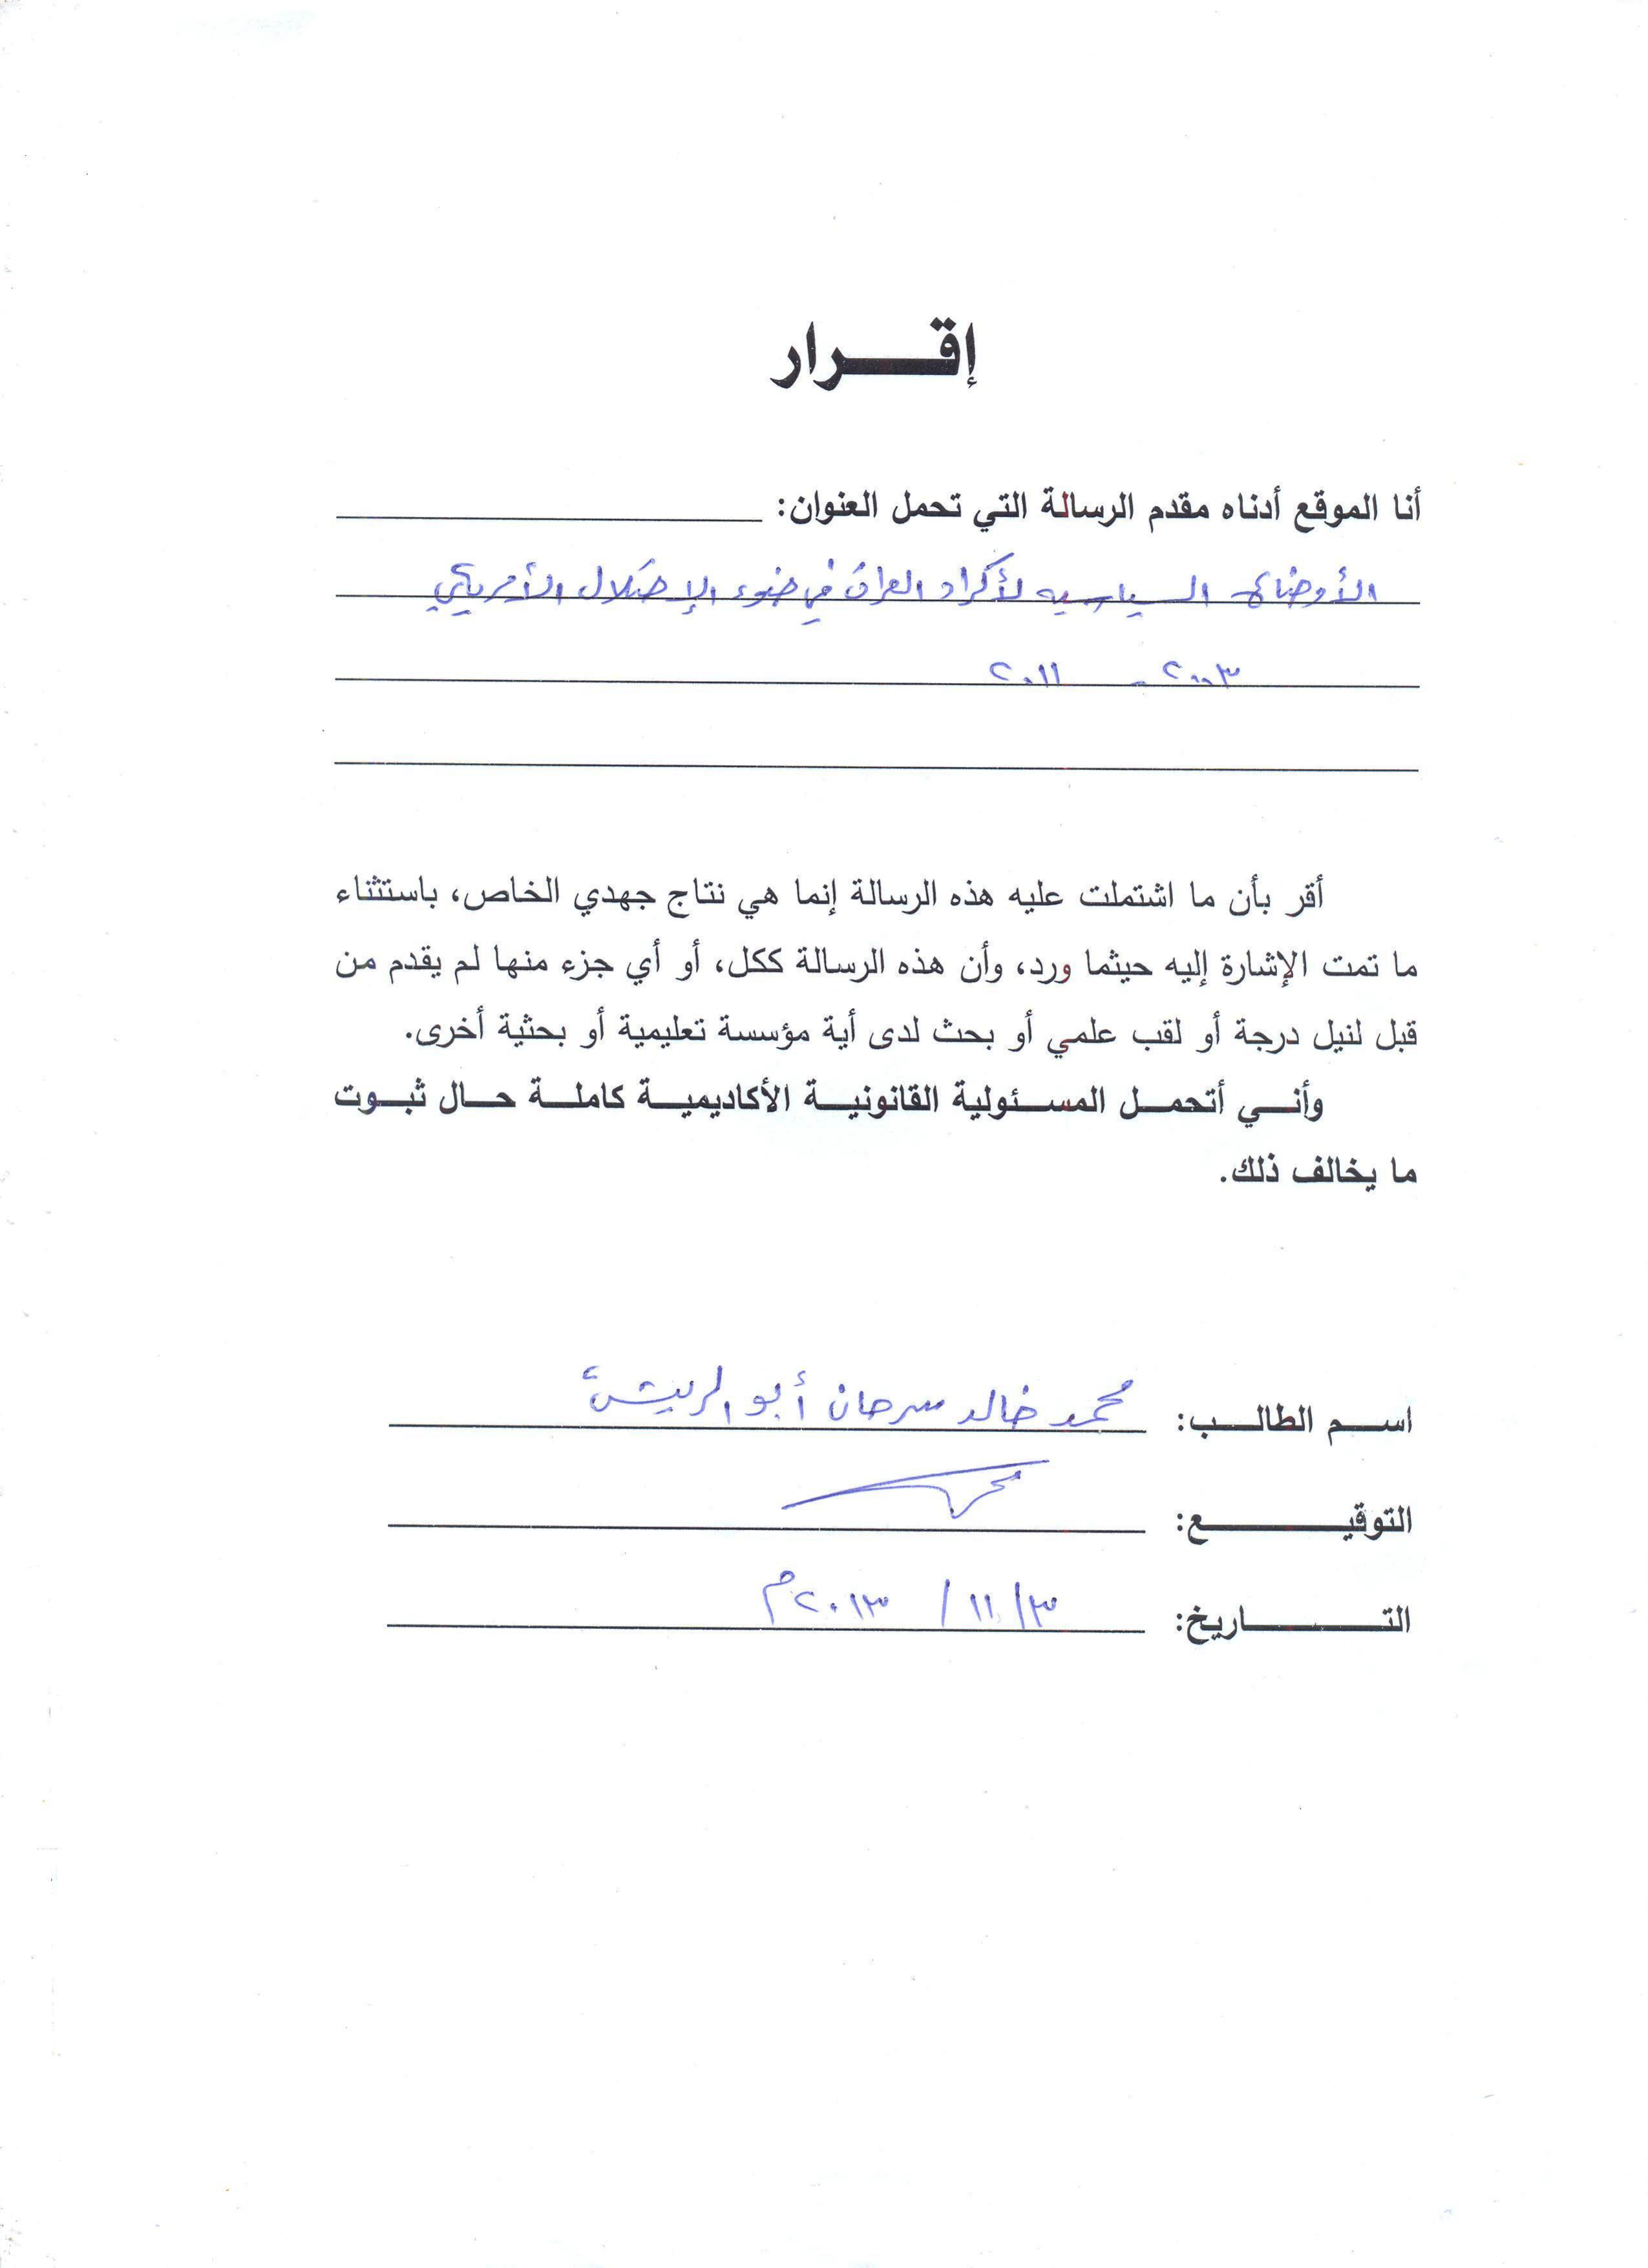 إقرار
أنا الموقع أدناه مقدم الرسالة التي تحمل العنوان:
الأوضاع السياسيه لأكراد العراق في ضوء الإحتلال الأمريكي
٢٠٠٣ - ٢٠١١
أقر بأن ما اشتملت عليه هذه الرسالة إنما هي نتاج جهدي الخاص، باستثناء
ما تمت الإشارة إليه حيثما ورد، وأن هذه الرسالة ككل، أو أي جزء منها لم يقدم من
قبل لنيل درجة أو لقب علمي أو بحث لدى أية مؤسسة تعليمية أو بحثية أخرى.
وأني أتحمل المسئولية القانونية الأكاديمية كاملة حال ثبوت
ما يخالف ذلك.
اسم الطالب: محمد خالد سرحان أبو الريش
التوقيع: محمد
التاريخ: ٣/ ١١/ ٢٠١٣م